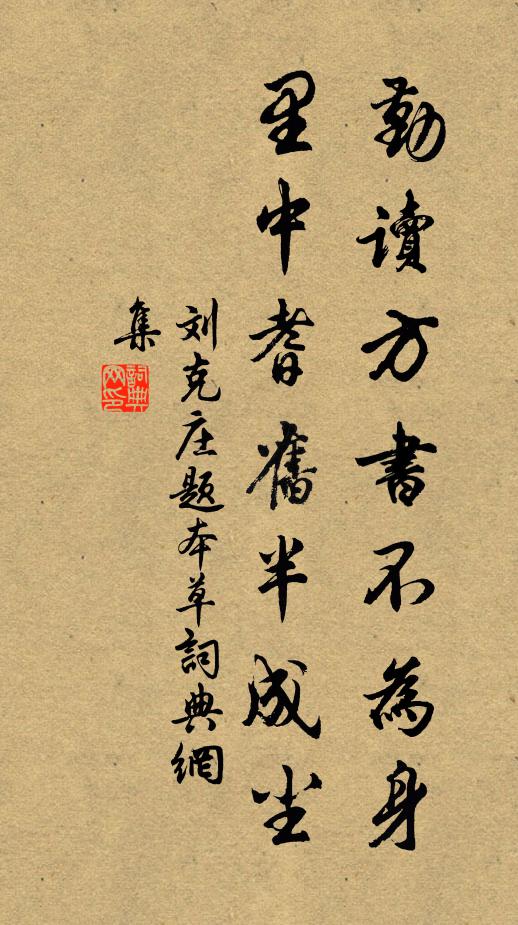 勤讀方書不為身
里中耆舊半成尘
刘克庄题本草詞典網
集
詞典
网印